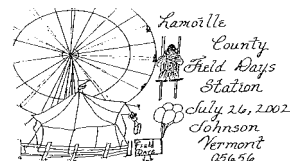 Lamoille
County
Field Days
Station
July 26, 2002
Johnson
Vermont
05656
Field
Days